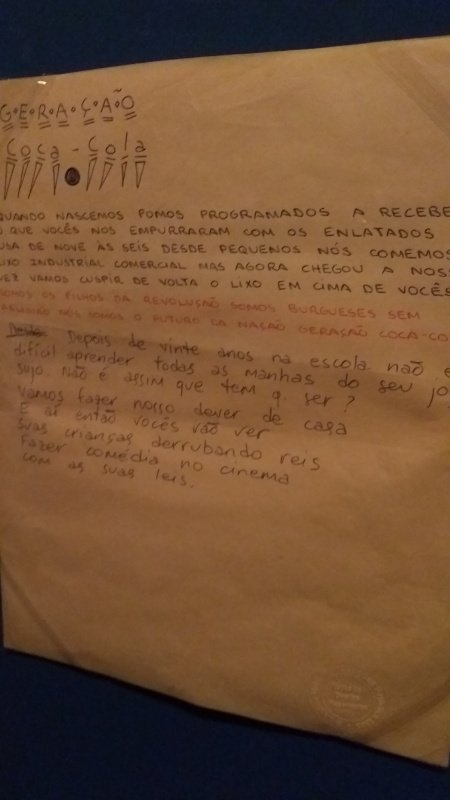 G.E.R.A.ÇÃO
Coca-Cola
QUANDO NASCEMOS FOMOS PROGRAMADOS A RECEBE
O QUE VOCÊS NOS EMPURRARAM COM OS ENLATADOS
USA DE NOVE ÀS SEIS DESDE PEQUENOS NÓS COMEMOS
LIXO INDUSTRIAL COMERCIAL MAS AGORA CHEGOU A NOSS
VEZ VAMOS CUSPIR DE VOLTA O LIXO EM CIMA DE VOCÊS
SOMOS OS FILHOS DA REVOLUÇÃO SOMOS BURGUESES SEM
NÓS SOMOS O FUTURO DA NAÇÃO GERAÇÃO COCA-CO
Depois de vinte anos na escola não é
difícil aprender todas as manhas do seu jo
sujo. Não é assim que tem q. ser?
Vamos fazer nosso dever de casa
E aí então vocês vão ver
Suas crianças derrubando reis
Fazer comédia no cinema
com as suas leis.